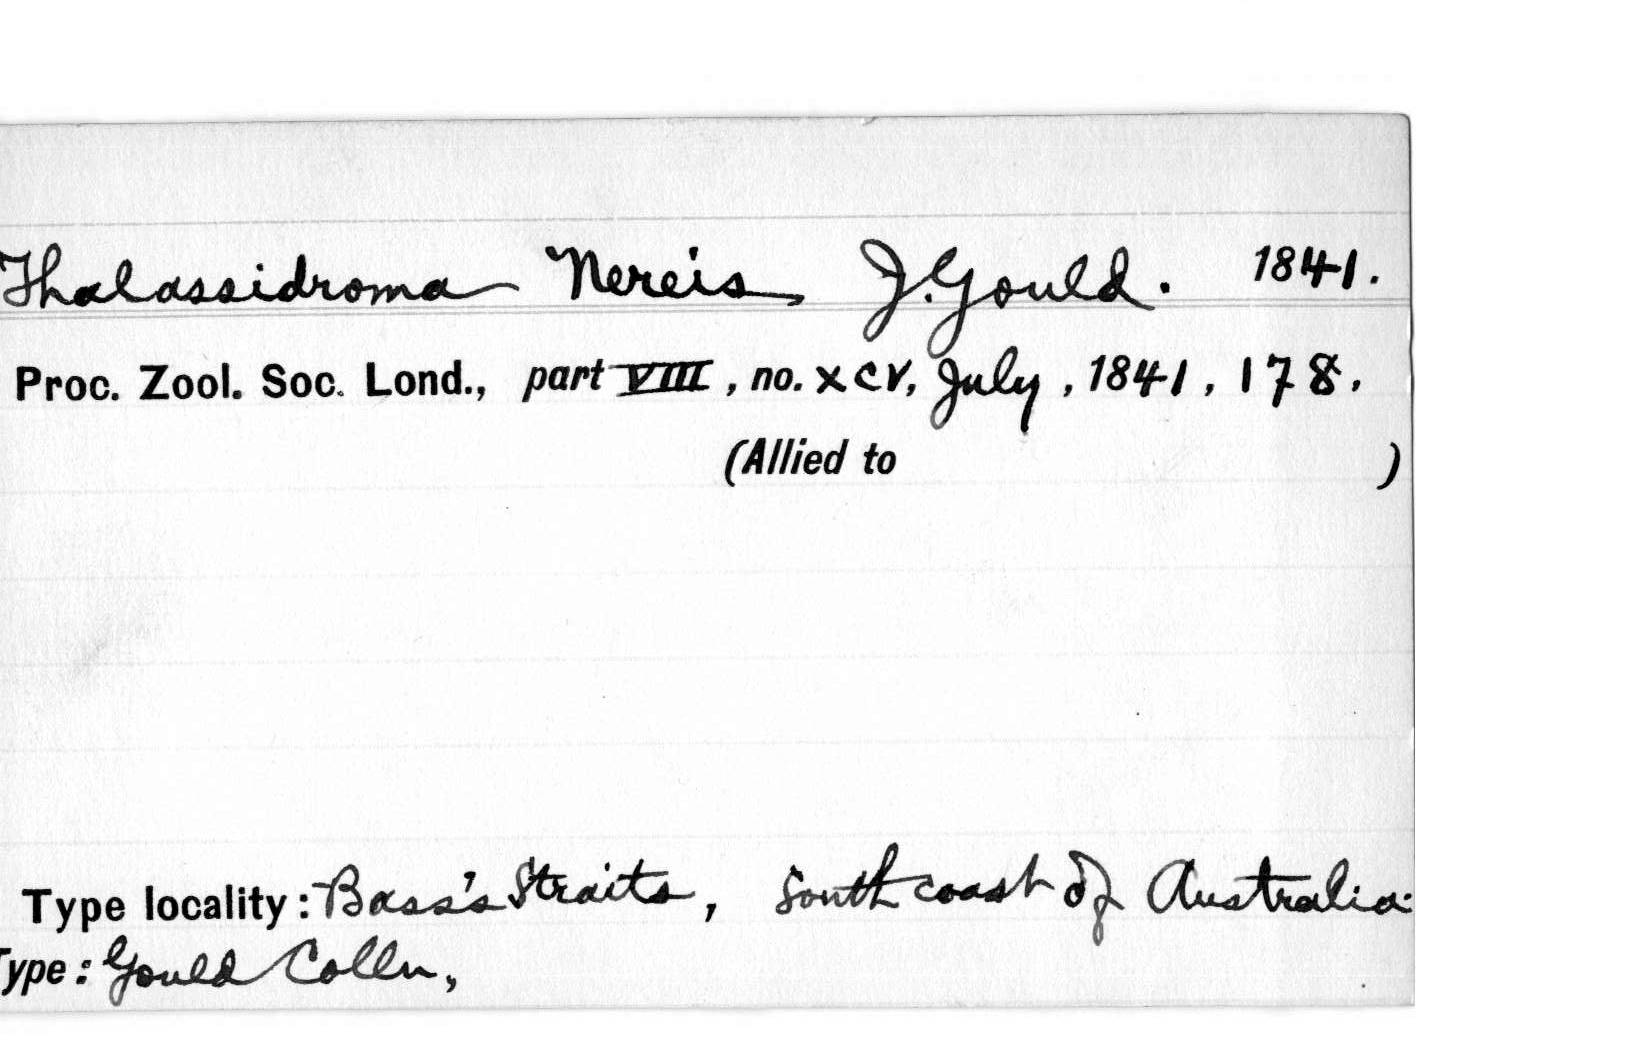 Thalassidroma Nereis J. Gould. 1841.
Proc. Zool. Soc. Lond., part VIII, no. XCV, July, 1841, 178.
(Allied to )
Type locality: Bass's Straits, South coast of Australia.
Type: Gould Colln,